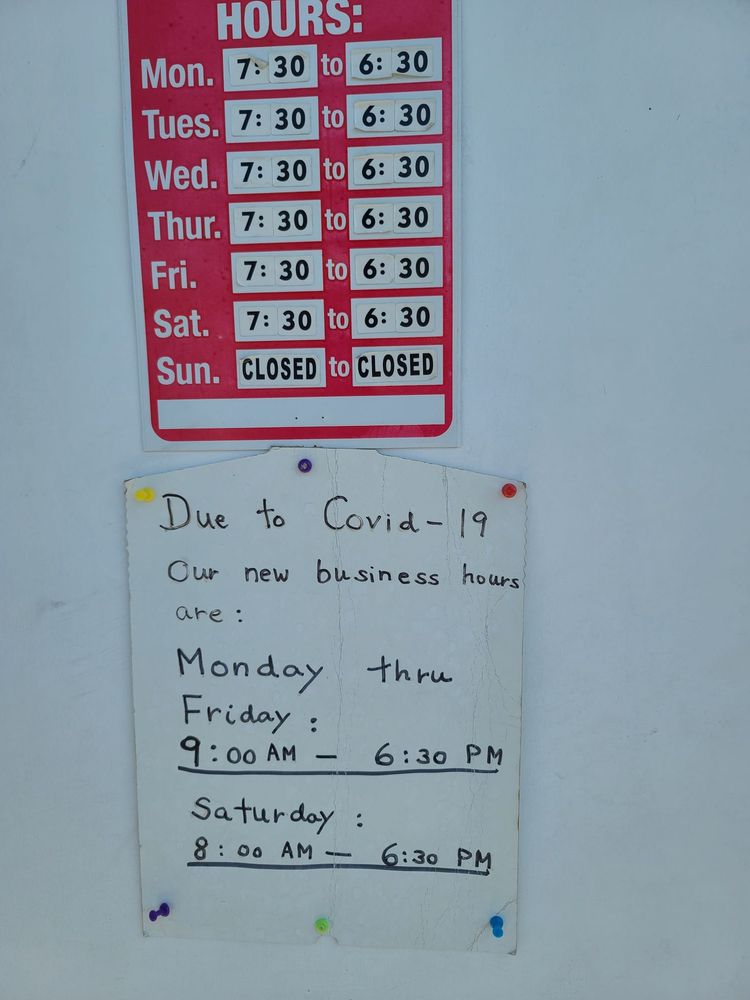 HOURS:
Mon. 7: 30 to 6: 30
Tues. 7: 30 to 6: 30
Wed. 7: 30 to 6: 30
Thur. 7: 30 to 6: 30
Fri. 7: 30 to 6: 30
Sat. 7: 30 to 6: 30
Sun. CLOSED to CLOSED
Due to Covid-19
Our new business hours
are:
Monday thru
Friday:
9:00 AM — 6:30 PM
Saturday:
8:00 AM — 6:30 PM